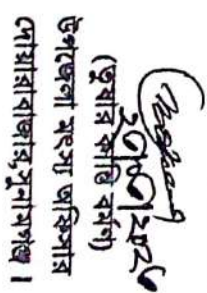 (তুষার কান্তি বর্মন)
উপজেলা মৎস্য অফিসার
দোয়ারাবাজার, সুনামগঞ্জ।